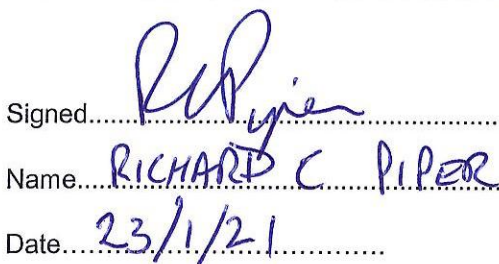 Signed................................................................
Name....RICHARD C PIPER
Date....23/1/21..................